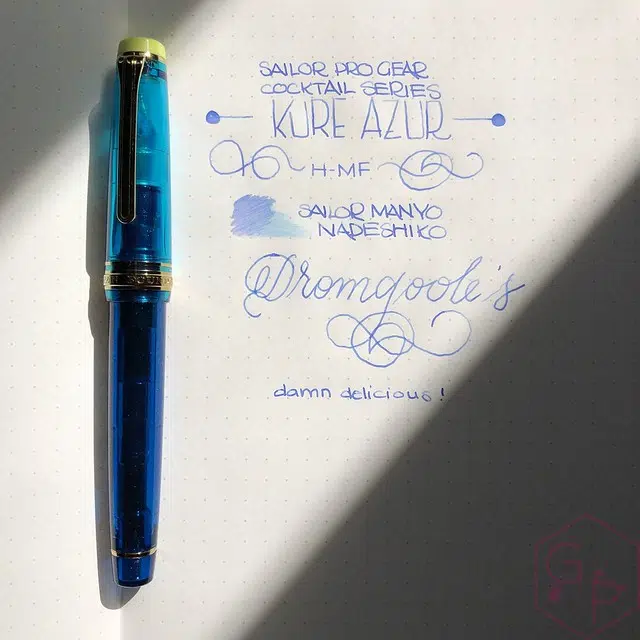 SAILOR PRO GEAR
COCKTAIL SERIES
KURE AZUR
H-MF
SAILOR MANYO
NADESHIKO
Dromgoole's
damn delicious!